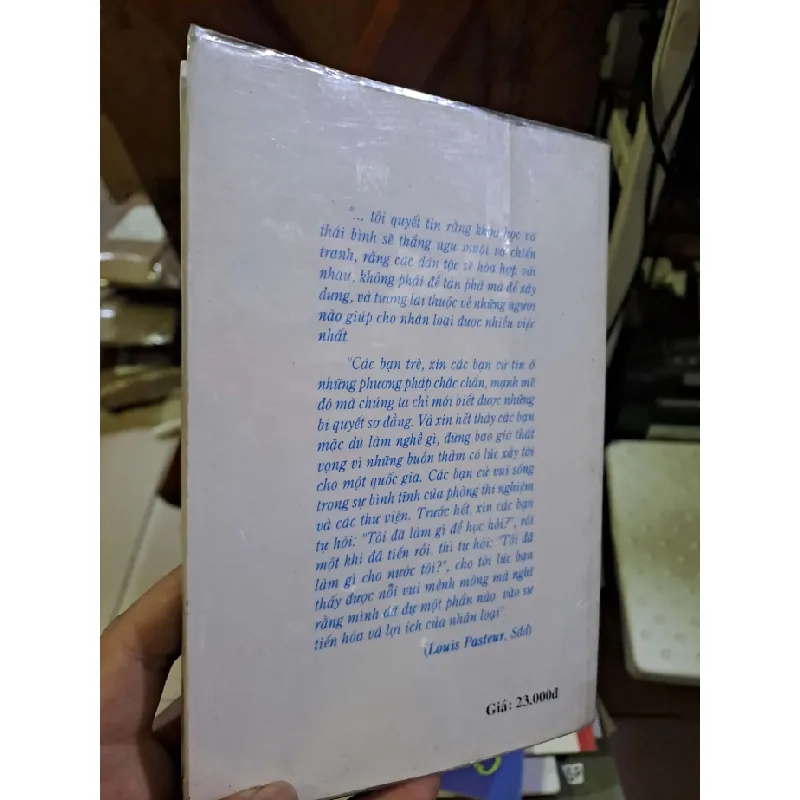 "... tôi quyết tin rằng khoa học và
thái bình sẽ thắng ngu muội và chiến
tranh, rằng các dân tộc sẽ hòa hợp với
nhau, không phải để tàn phá mà để xây
dựng, và tương lai thuộc về những người
nào giúp cho nhân loại được nhiều việc
nhất.
"Các bạn trẻ, xin các bạn cứ tin ở
những phương pháp chắc chắn, mạnh mẽ
đó mà chúng ta chỉ mới biết được những
bí quyết sơ đẳng. Và xin hết thảy các bạn
mặc dù làm nghề gì, đừng bao giờ thất
vọng vì những buồn thảm có lúc xảy tới
cho một quốc gia. Các bạn cứ vui sống
trong sự bình tĩnh của phòng thí nghiệm
và các thư viện. Trước hết, xin các bạn
tự hỏi: "Tôi đã làm gì để học hỏi?", rồi
một khi đã tiến rồi, thì tự hỏi: "Tôi đã
làm gì cho nước tôi?", cho tới lúc bạn
thấy được nỗi vui mênh mông mà nghĩ
rằng mình đã dự một phần nào vào sự
tiến hóa và lợi ích của nhân loại".
(Louis Pasteur, Sđd)
Giá: 23.000đ